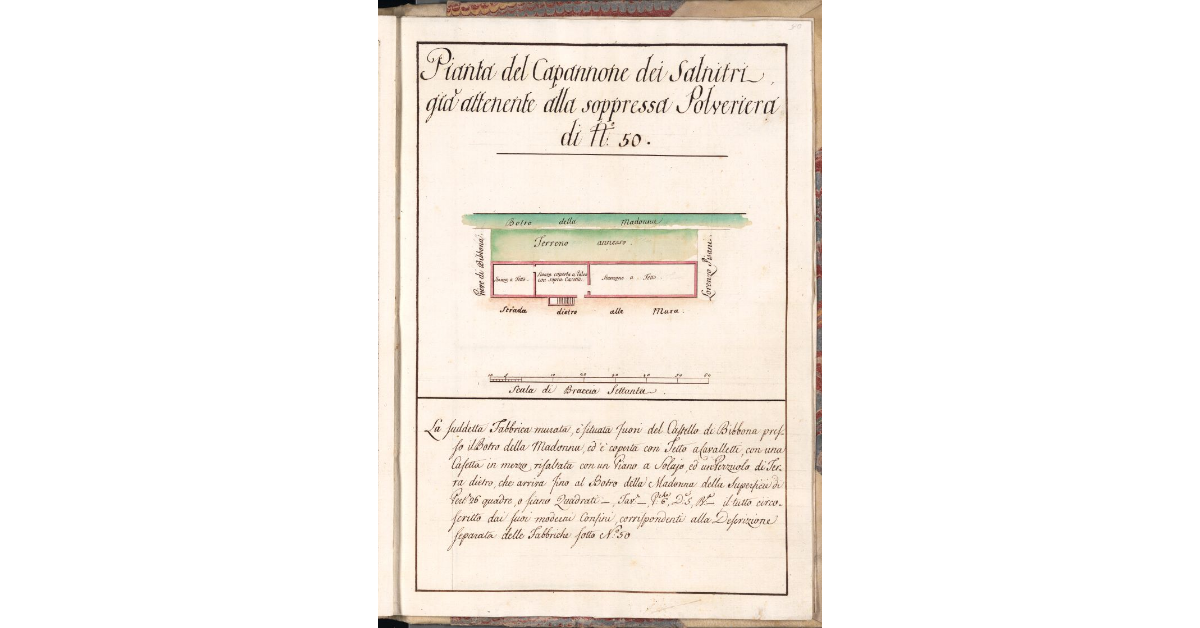 Pianta del Capannone dei Salnitri
già attenente alla soppressa Polveriera
di N.º 50.
Botro della Madonna
Terreno annesso.
Pieve di Bibbona
Lorenzo Pisani.
Stanza a Tetto.
Stanza coperta a Palco
con sopra Casetta.
Stanzone a Tetto
Strada dietro alle Mura.
10 5 10 20 30 40 50 60
Scala di Braccia Settanta.
La suddetta Fabbrica murata, è situata fuori del Castello di Bibbona pres-
so il Botro della Madonna, ed è coperta con Tetto a Cavalletti, con una
Casetta in mezzo risaltata con un Piano a Solajo, ed un Pezzuolo di Ter-
ra dietro, che arriva fino al Botro della Madonna della Superficie di
Pert.e 26 quadre, o siano Quadrati —, Tav.e — P.che 6, D.i 5, B.a — il tutto circo-
scritto dai suoi moderni Confini, corrispondenti alla Descrizione
separata delle Fabbriche sotto N.º 50